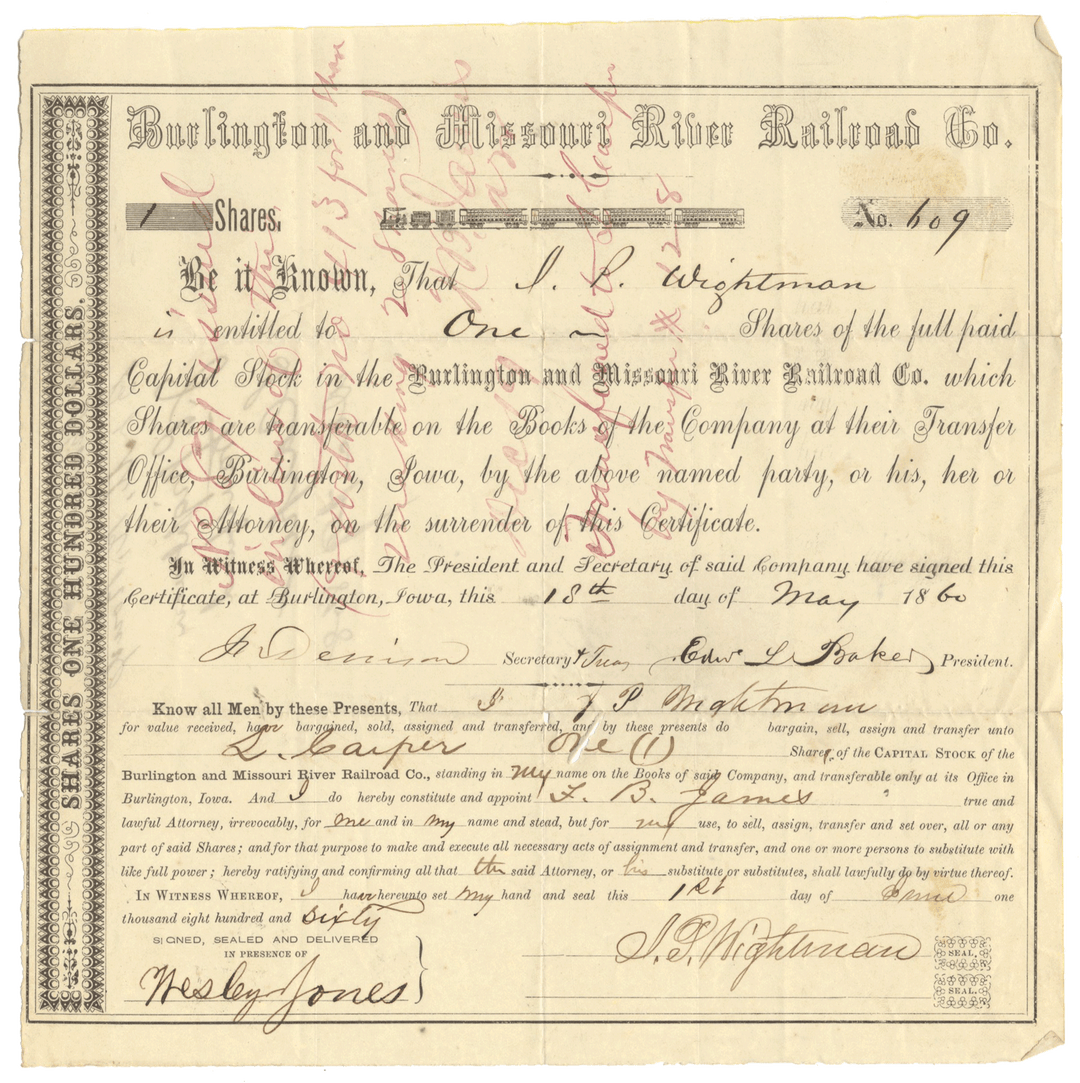 Burlington and Missouri River Railroad Co.
1 Shares. No. 609
Be it Known, That J. P. Wightman
is entitled to One Shares of the full paid
Capital Stock in the Burlington and Missouri River Railroad Co. which
Shares are transferable on the Books of the Company at their Transfer
Office, Burlington, Iowa, by the above named party, or his, her or
their Attorney, on the surrender of this Certificate.
In Witness Whereof, The President and Secretary of said Company have signed this
Certificate, at Burlington, Iowa, this 18th day of May 1860
Denison Secretary & Treas Edw. L. Baker President.
Know all Men by these Presents, That I J P Wightman
for value received, have bargained, sold, assigned and transferred, and by these presents do bargain, sell, assign and transfer unto
L. Carper One (1) Share of the CAPITAL STOCK of the
Burlington and Missouri River Railroad Co., standing in my name on the Books of said Company, and transferable only at its Office in
Burlington, Iowa. And I do hereby constitute and appoint F. B. James true and
lawful Attorney, irrevocably, for me and in my name and stead, but for my use, to sell, assign, transfer and set over, all or any
part of said Shares; and for that purpose to make and execute all necessary acts of assignment and transfer, and one or more persons to substitute with
like full power; hereby ratifying and confirming all that the said Attorney, or his substitute or substitutes, shall lawfully do by virtue thereof.
IN WITNESS WHEREOF, I have hereunto set my hand and seal this 1st day of June one
thousand eight hundred and sixty
SIGNED, SEALED AND DELIVERED
IN PRESENCE OF
Wesley Jones
J. P. Wightman SEAL.
SEAL.
SHARES ONE HUNDRED DOLLARS.
Transferred to L Carper
by Transfer # 128